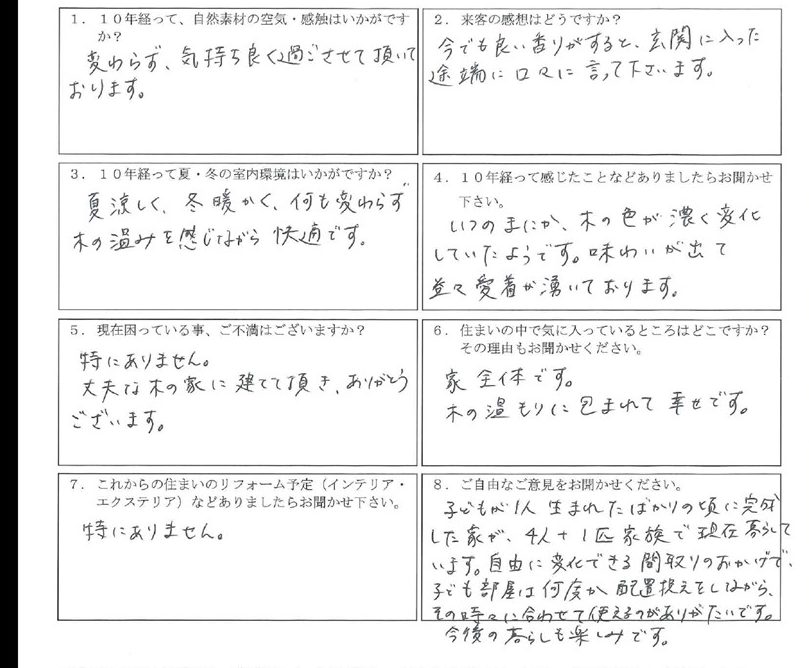 1．１０年経って、自然素材の空気・感触はいかがです
か？
変わらず、気持ち良く過ごさせて頂いて
おります。
2．来客の感想はどうですか？
今でも良い香りがすると、玄関に入った
途端に口々に言って下さいます。
3．１０年経って夏・冬の室内環境はいかがですか？
夏涼しく、冬暖かく、何も変わらず
木の温みを感じながら快適です。
4．１０年経って感じたことなどありましたらお聞かせ
下さい。
いつのまにか、木の色が濃く変化
していたようです。味わいが出て
益々愛着が湧いております。
5．現在困っている事、ご不満はございますか？
特にありません。
丈夫な木の家に建てて頂き、ありがとう
ございます。
6．住まいの中で気に入っているところはどこですか？
その理由もお聞かせください。
家全体です。
木の温もりに包まれて幸せです。
7．これからの住まいのリフォーム予定（インテリア・
エクステリア）などありましたらお聞かせ下さい。
特にありません。
8．ご自由なご意見をお聞かせください。
子どもが1人生まれたばかりの頃に完成
した家が、4人＋1匹家族で現在暮らして
います。自由に変化できる間取りのおかげで、
子ども部屋は何度か配置換えをしながら、
その時々に合わせて使えるのがありがたいです。
今後の暮らしも楽しみです。